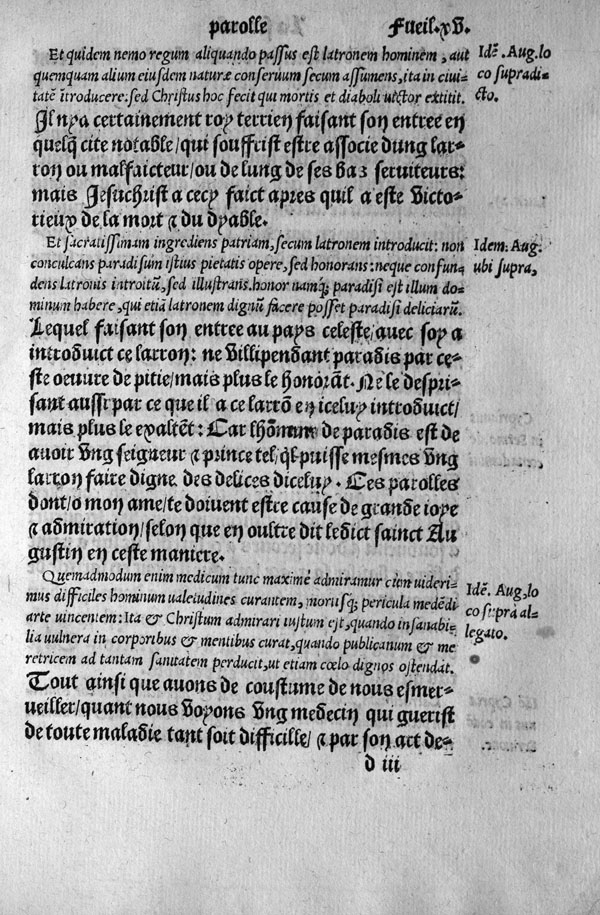 parolle Fueil.xv.
Et quidem nemo regum aliquando passus est latronem hominem, aut
quemquam alium eiusdem naturæ conseruum secum assumens, ita in ciui-
tatē ītroducere: sed Christus hoc fecit qui mortis et diaboli uictor extitit.
Idē. Aug. lo
co supradi-
cto.
Il nya certainement roy terrien faisant son entree en
quelq̄ cite notable/ qui souffrist estre associe dung lar-
ron ou malfaicteur/ ou de lung de ses baz seruiteurs:
mais Jesuchrist a cecy faict apres quil a este victo-
rieux de la mort & du dyable.
Et sacratissimam ingrediens patriam, secum latronem introducit: non
conculcans paradisum istius pietatis opere, sed honorans: neque confun
dens latronis introitū, sed illustrans. honor namq; paradisi est illum do-
minum habere, qui etiā latronem dignū facere posset paradisi deliciarū.
Idem. Aug.
ubi supra,
Lequel faisant son entree au pays celeste/ auec soy a
introduict ce larron: ne villipendant paradis par ce-
ste oeuure de pitie/ mais plus le honorāt. Ne le despri-
sant aussi par ce que il a ce larrō en iceluy introduict/
mais plus le exaltēt: Car lhōneur de paradis est de
auoir vng seigneur & prince tel/ ql puisse mesmes vng
larron faire digne des delices diceluy. Ces parolles
dont/ o mon ame/ te doiuent estre cause de grande ioye
& admiration/ selon que en oultre dit ledict sainct Au
gustin en ceste maniere.
Quemadmodum enim medicum tunc maximè admiramur cum uideri-
mus difficiles hominum ualetudines curantem, mortisq; pericula medēdi
arte uincentem: Ita & Christum admirari iustum est, quando insanabi-
lia uulnera in corporibus & mentibus curat, quando publicanum & me
retricem ad tantam sanitatem perducit, ut etiam cœlo dignos ostendat.
Idē. Aug, lo
co supra al-
legato.
Tout ainsi que auons de coustume de nous esmer-
ueiller/ quant nous voyons vng medecin qui guerist
de toute maladie tant soit difficille/ & par son art de-
d iii